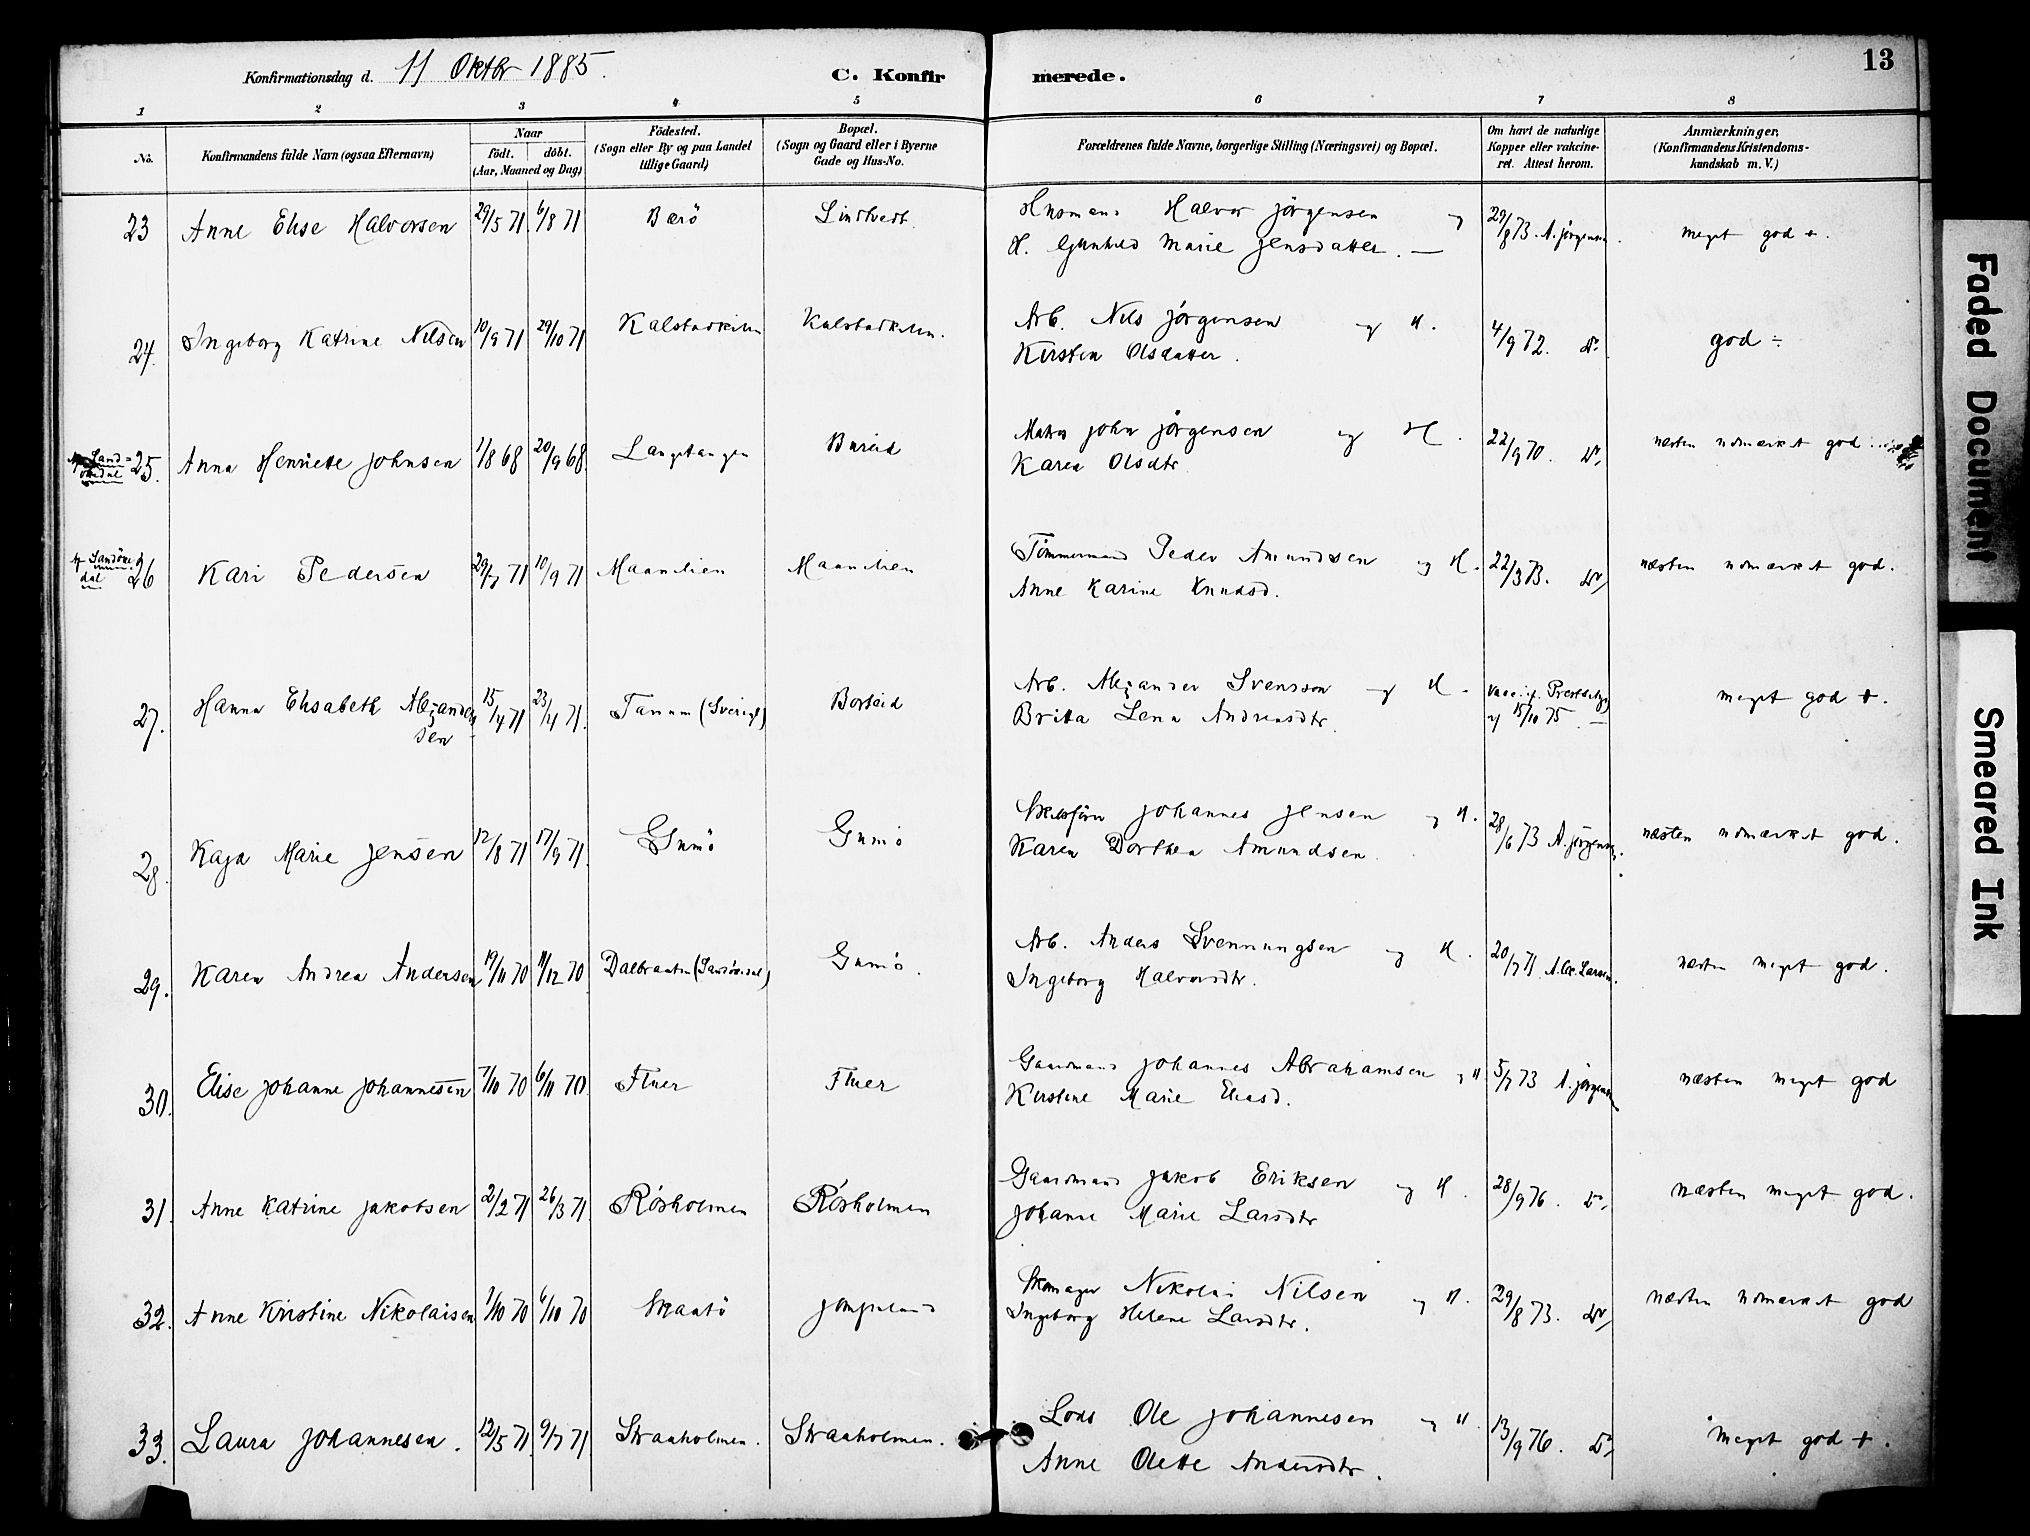 13
Konfirmationsdag d. 11 Oktbr 1885.
C. Konfirmerede.
1 2 3 4 5 6 7 8
No.
Konfirmandens fulde Navn (ogsaa Efternavn)
Naar
födt. döbt.
(Aar, Maaned og Dag)
Födested.
(Sogn eller By og paa Landet
tillige Gaard)
Bopæl.
(Sogn og Gaard eller i Byerne
Gade og Hus-No.
Forældrenes fulde Navne, borgerlige Stilling (Næringsvei) og Bopæl.
Om havt de naturlige
Kopper eller vakcine-
ret. Attest herom.
Anmærkninger.
(Konfirmandens Kristendoms-
kundskab m. V.)
23 Anne Elise Halvorsen 29/5 71 6/8 71 Berö Lindtvedt Husmand Halvor Jörgensen og
H. Gunhild Marie Jensdatter. — 29/8 73. A. Jörgensen. meget god +.
24. Ingeborg Katrine Nilsen 10/9 71 29/10 71 Kalstadkilen Kalstadkilen. Arb. Nils Jörgensen og H.
Kirsten Olsdatter. 4/9 72. Do god ÷
25. Anna Henriette Johnsen 1/8 68 20/9 68 Langtangen Bureid Matros John Jörgensen og H.
Karen Olsdtr 22/9 70. Do næsten udmærket god
af Sandöke-
dal
26 Kari Pedersen 29/7 71 10/9 71 Maanlien Maanlien Tömmermand Peder Amundsen og H.
Anne Karine Knudsd. 22/3 73. Do næsten udmærket god.
27. Hanna Elisabeth Alexander
sen 15/4 71 23/4 71. Tanum (Sverige) Borteid Arb. Alexander Svensson og H.
Britta Lena Andreasdtr. 15/10 75 — meget god +.
28. Kaja Marie Jensen 12/8 71 17/9 71. Gumö Gumö Johannes Jensen og H.
Karen Dorthea Amundsen. 28/6 73 A. Jörgensen. næsten udmærket god.
29. Karen Andrea Andersen 19/11 70 11/12 70 Dalbraaten (Sandökedal) Gumö. Arb. Anders Svenningsen og H.
Ingeborg Halvorsdtr. 20/7 71 A. Chr. Larsen. næsten meget god.
30. Elise Johanne Johannesen 7/10 70 6/11 70 Fluer Fluer Gaardmand Johannes Abrahamsen og H
Kirstine Marie Eliasd. 5/7 73 A. Jörgensen næsten meget god
31. Anne Katrine Jakobsen 2/2 71 26/3 71 Rörholmen Rörholmen Gaardmand Jakob Eriksen og H.
Johanne Marie Larsdtr 28/9 76. Do næsten meget god.
32. Anne Kristine Nikolaisen 1/10 70 6/10 70 Skaatö Jomfruland Skomager Nikolai Nilsen og H.
Ingeborg Helene Larsdtr. 29/8 73. Do næsten udmærket god
33. Laura Johannesen. 12/5 71 9/7 71 Straaholmen. Straaholmen. Lods Ole Johannesen og H.
Anne Olette Andersdtr. 13/9 76. Do meget god +.
Faded Document
Smeared Ink